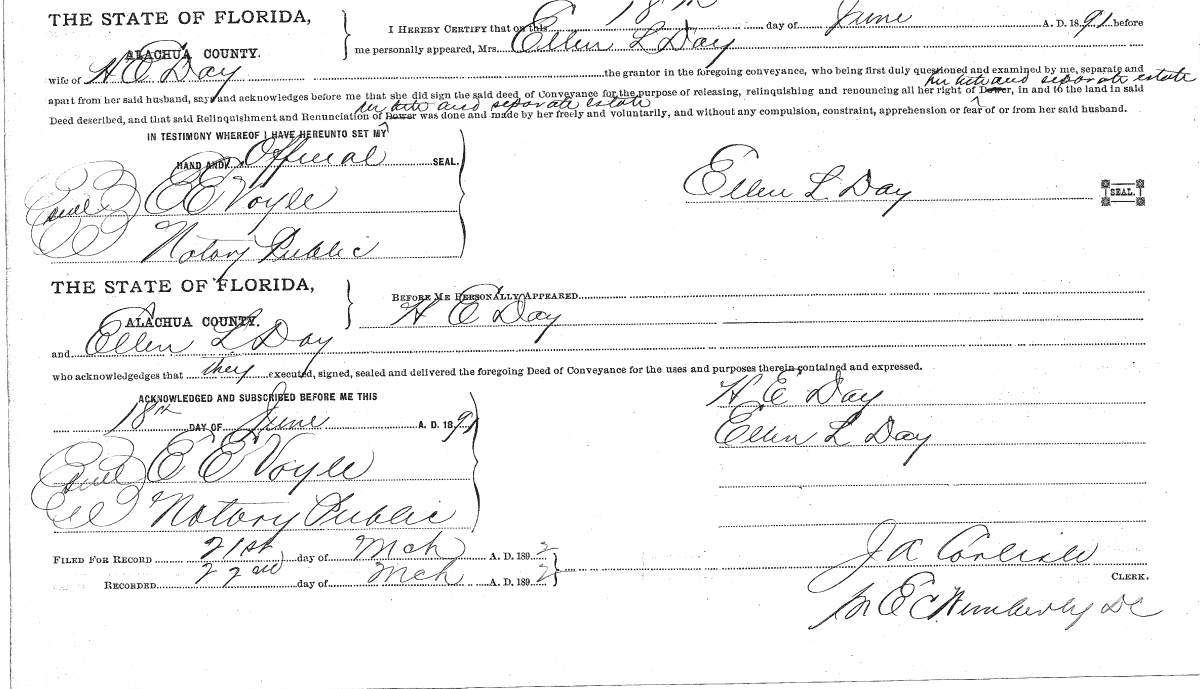 THE STATE OF FLORIDA,
ALACHUA COUNTY.
I HEREBY CERTIFY that on this 18th day of June A. D. 1891 before
me personally appeared, Mrs. Ellen L Day
wife of H E Day the grantor in the foregoing conveyance, who being first duly questioned and examined by me, separate and
her title and separate estate
apart from her said husband, says and acknowledges before me that she did sign the said deed of Conveyance for the purpose of releasing, relinquishing and renouncing all her right of Dower, in and to the land in said
her title and separate estate
Deed described, and that said Relinquishment and Renunciation of Dower was done and made by her freely and voluntarily, and without any compulsion, constraint, apprehension or fear of or from her said husband.
IN TESTIMONY WHEREOF I HAVE HEREUNTO SET MY
HAND AND Official SEAL.
Ellen L Day SEAL.
Seal E E Voyle
Notary Public
THE STATE OF FLORIDA,
ALACHUA COUNTY.
BEFORE ME PERSONALLY APPEARED
H E Day
and Ellen L Day
who acknowledgedges that they executed, signed, sealed and delivered the foregoing Deed of Conveyance for the uses and purposes therein contained and expressed.
ACKNOWLEDGED AND SUBSCRIBED BEFORE ME THIS
18th DAY OF June A. D. 1891
H E Day
Ellen L Day
Seal E E Voyle
Notary Public
FILED FOR RECORD 21st day of Mch A. D. 1892
RECORDED 22nd day of Mch A. D. 1892
J A Carlisle
CLERK.
E C Wimberly DC